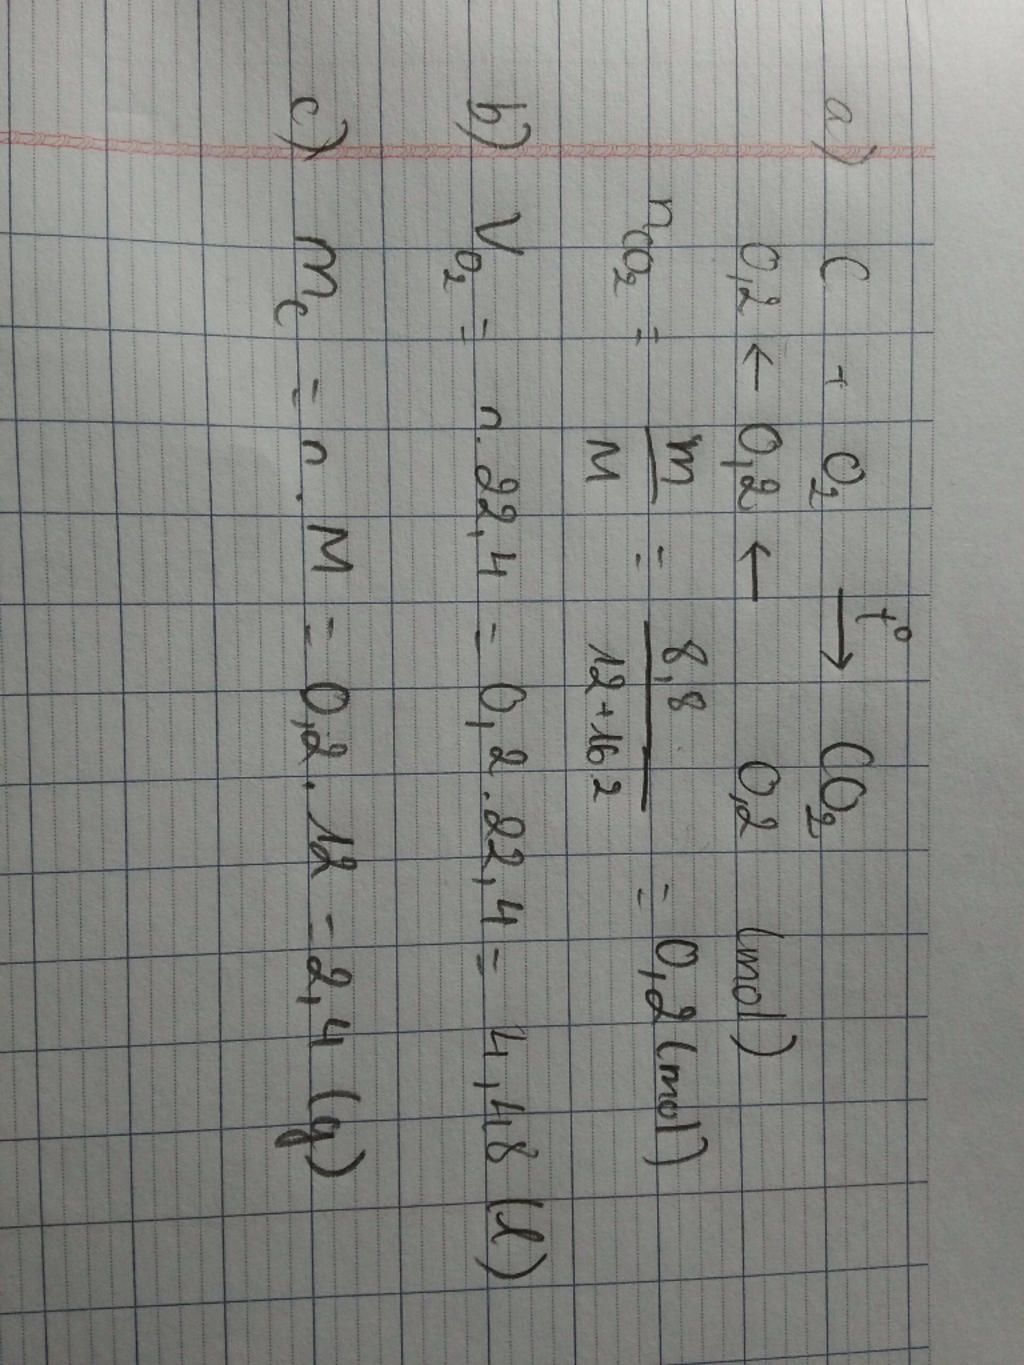 a) C + O₂ —t°→ CO₂
0,2 ← 0,2 ← 0,2 (mol)
nCO₂ = m/M = 8,8/(12+16.2) = 0,2 (mol)
b) VO₂ = n.22,4 = 0,2.22,4 = 4,48 (l)
c) mC = n.M = 0,2.12 = 2,4 (g)